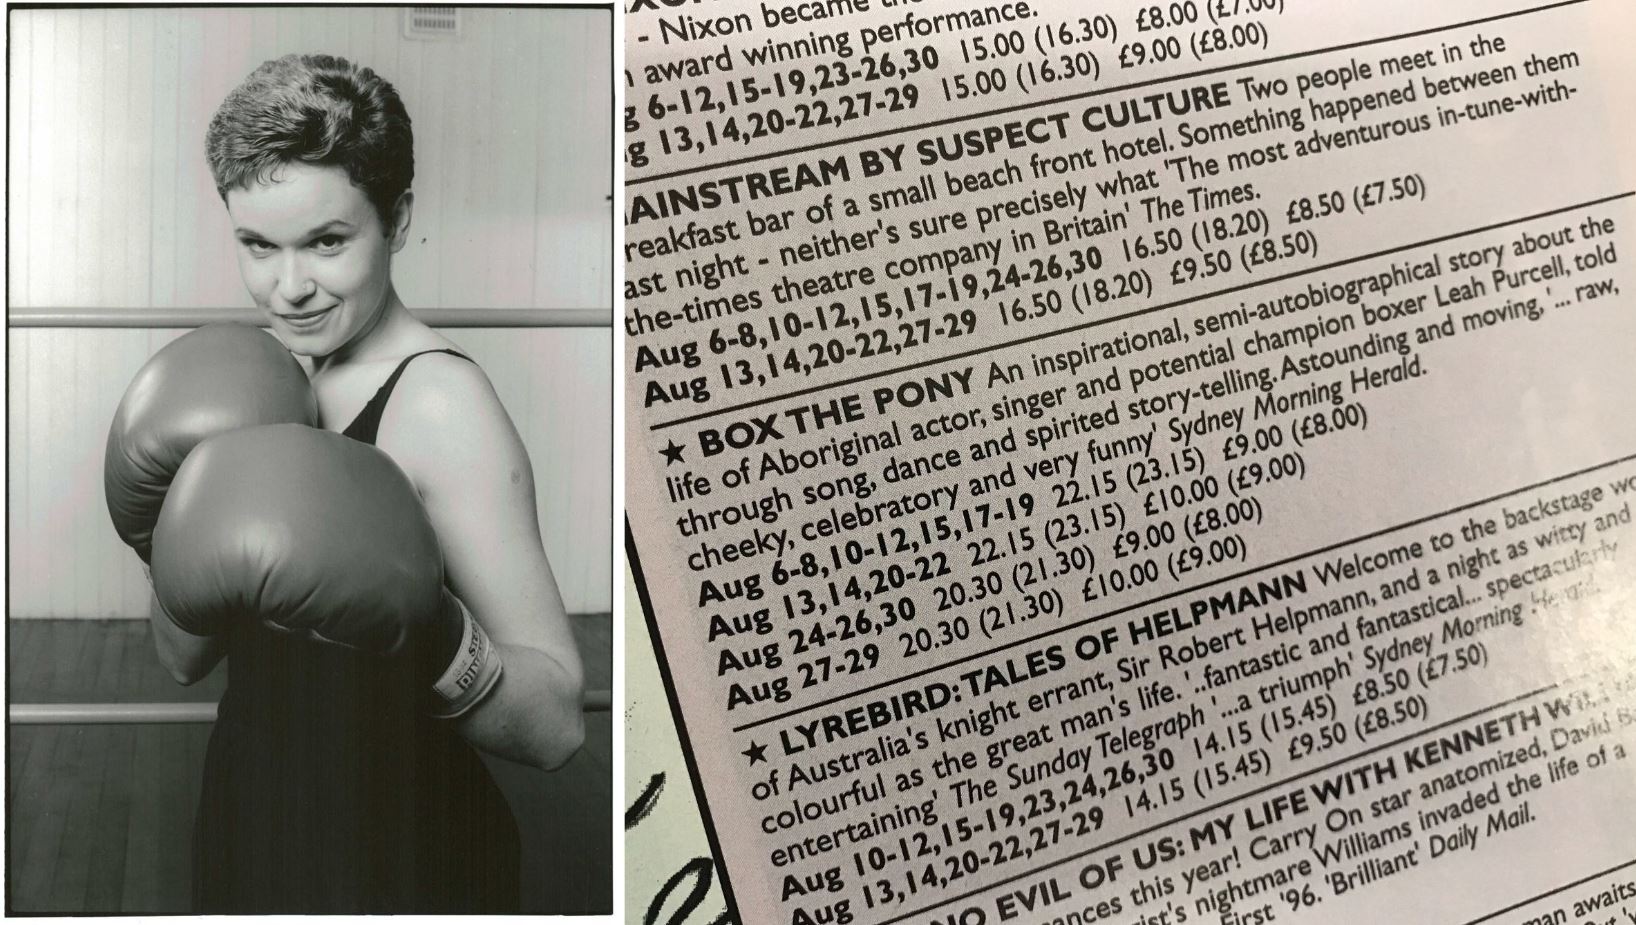 - Nixon became
award winning performance.
6-12,15-19,23-26,30 15.00 (16.30) £8.00 (£7.00)
13,14,20-22,27-29 15.00 (16.30) £9.00 (£8.00)
AINSTREAM BY SUSPECT CULTURE Two people meet in the
reakfast bar of a small beach front hotel. Something happened between them
ast night - neither's sure precisely what 'The most adventurous in-tune-with-
the-times theatre company in Britain' The Times.
Aug 6-8,10-12,15,17-19,24-26,30 16.50 (18.20) £8.50 (£7.50)
Aug 13,14,20-22,27-29 16.50 (18.20) £9.50 (£8.50)
★ BOX THE PONY An inspirational, semi-autobiographical story about the
life of Aboriginal actor, singer and potential champion boxer Leah Purcell, told
through song, dance and spirited story-telling. Astounding and moving, '... raw,
cheeky, celebratory and very funny' Sydney Morning Herald.
Aug 6-8,10-12,15,17-19 22.15 (23.15) £9.00 (£8.00)
Aug 13,14,20-22 22.15 (23.15) £10.00 (£9.00)
Aug 24-26,30 20.30 (21.30) £9.00 (£8.00)
Aug 27-29 20.30 (21.30) £10.00 (£9.00)
★ LYREBIRD: TALES OF HELPMANN Welcome to the backstage
of Australia's knight errant, Sir Robert Helpmann, and a night as witty and
colourful as the great man's life. '..fantastic and fantastical... spectacularly
entertaining' The Sunday Telegraph '...a triumph' Sydney Morning Herald.
Aug 10-12,15-19,23,24,26,30 14.15 (15.45) £8.50 (£7.50)
Aug 13,14,20-22,27-29 14.15 (15.45) £9.50 (£8.50)
NO EVIL OF US: MY LIFE WITH KENNETH
ances this year! Carry On star anatomized, David
ist's nightmare Williams invaded the life of a
First '96. 'Brilliant' Daily Mail.
man awaits